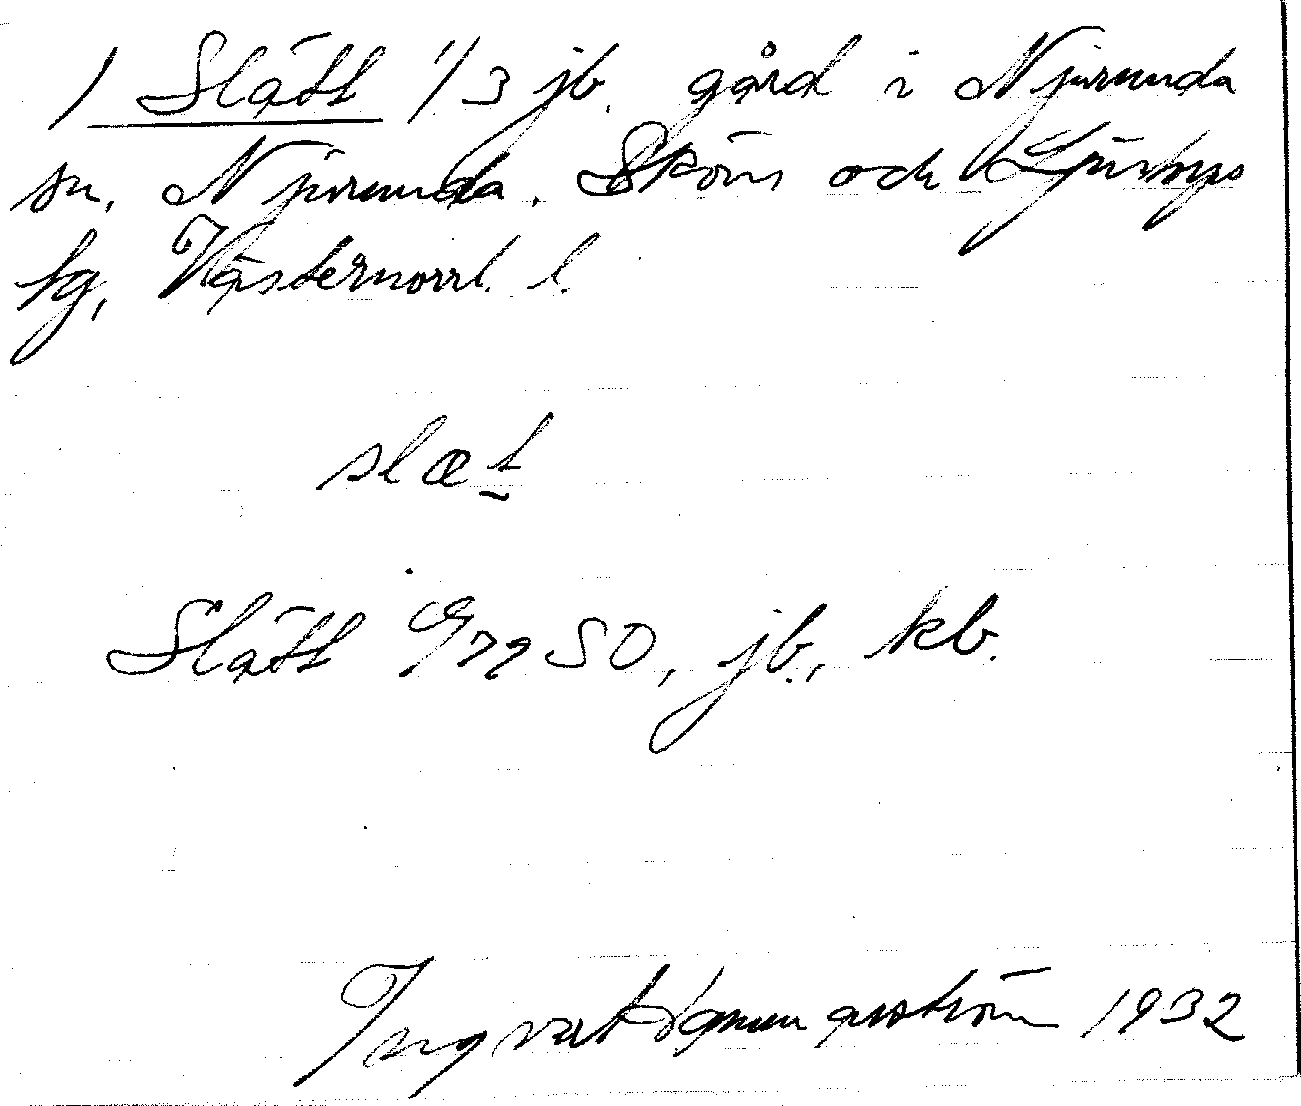 1 Slätt 1/3 jb. gård i Njurunda
sn, Njurunda, Sköns och Ljustorps
tg, Västernorrl. l.
slæt
Slätt G79 SO, jb., kb.
Ingvar 1932